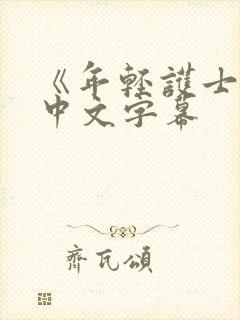 《年轻護士
中文字幕
齊瓦頌